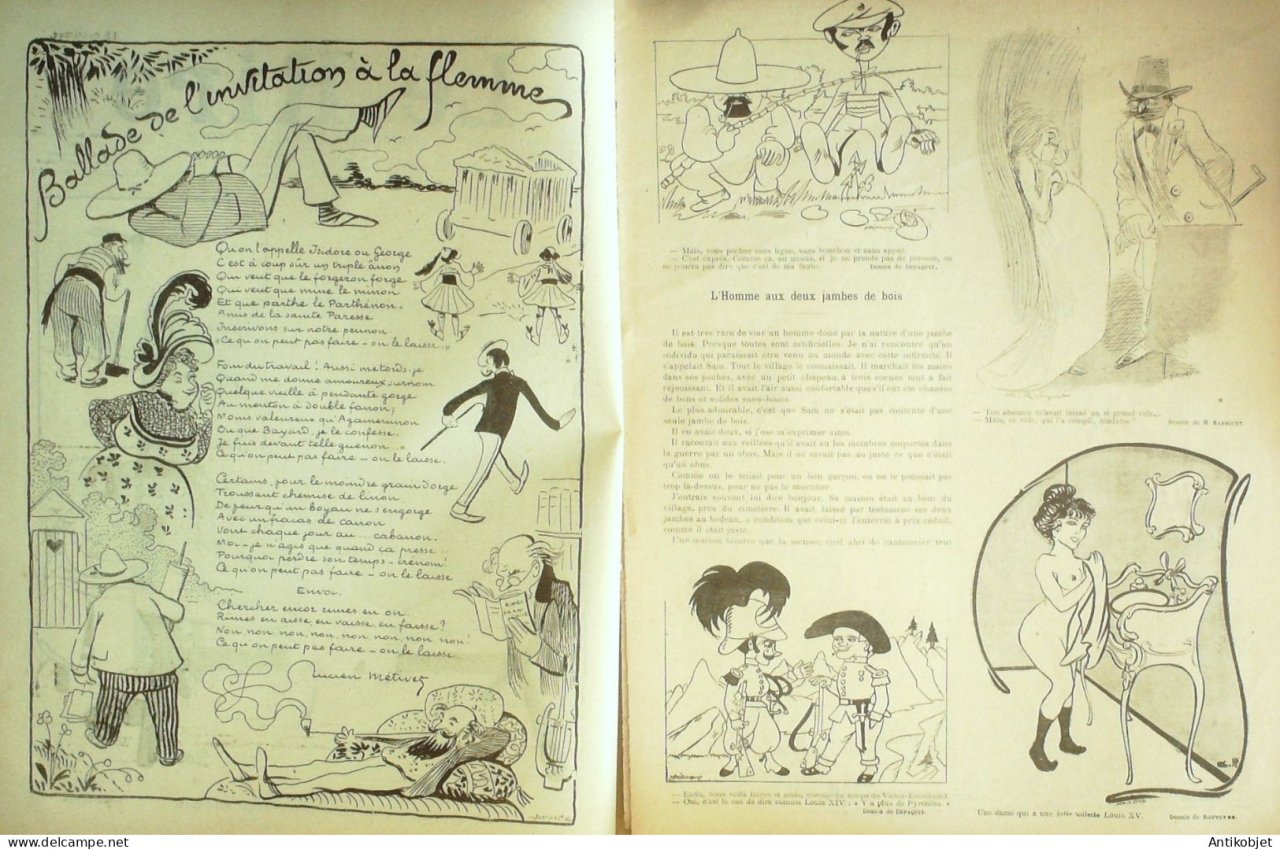 Ballade de l'invitation à la flemme
Qu'on l'appelle Isidore ou George
C'est à coup sûr un triple ânon
Qui veut que le forgeron forge
Qui veut que mine le minon
Et que parthe le Parthénon.
Amis de la sainte Paresse
Inscrivons sur notre pennon
Ce qu'on peut pas faire - on le laisse.
Fom du travail! Aussi me tords-je
Quand me donne amoureux surnom
Quelque vieille à pendante gorge
Au menton à double fanon;
Moins valeureux qu'Agamemnon
Ou que Bayard je le confesse.
Je fuis devant telle guenon.
Ce qu'on peut pas faire - on le laisse.
Certains, pour le moindre grain d'orge
Troussant chemise de linon,
De peur qu'un boyau ne s'engorge
Avec un fracas de canon
Vont chaque jour au ... cabanon.
Moi - je n'agis que quand ça presse ..
Pourquoi perdre son temps - crénom!
Ce qu'on peut pas faire - on le laisse
Envoi.
Chercher encor rimes en on
Rimes en aisse, en vaisse, en faisse?
Non, non, non, non, non, non, non, non!
Ce qu'on peut pas faire - on le laisse.
Lucien Métivet
— Mais, vous pêchez sans ligne, sans bouchon et sans appât.
— C'est exprès. Comme ça, au moins, si je ne prends pas de poisson, on
ne pourra pas dire que c'est de ma faute. Dessin de Depaquit.
L'Homme aux deux jambes de bois
Il est très rare de voir un homme doué par la nature d'une jambe
de bois. Presque toutes sont artificielles. Je n'ai rencontré qu'un
individu qui paraissait être venu au monde avec cette infirmité. Il
s'appelait Sam. Tout le village le connaissait. Il marchait les mains
dans ses poches, avec un petit chapeau à trois cornes tout à fait
réjouissant. Et il avait l'air aussi confortable que s'il eût été chaussé
de bons et solides snow-boots.
Le plus admirable, c'est que Sam ne s'était pas contenté d'une
seule jambe de bois.
Il en avait deux, si j'ose m'exprimer ainsi.
Il racontait aux veillées qu'il avait eu les membres emportés dans
la guerre par un obus. Mais il ne savait pas au juste ce que c'était
qu'un obus.
Comme on le tenait pour un bon garçon, on ne le poussait pas
trop là-dessus, pour ne pas le mortifier.
J'entrais souvent lui dire bonjour. Sa maison était au bout du
village, près du cimetière. Il avait laissé par testament ses deux
jambes au bedeau, à condition que celui-ci l'enterrât à prix réduit,
comme il était juste.
Une maison bizarre que la sienne, vieil abri de cantonnier tout
— Enfin, nous voilà frères et amis, comme du temps de Victor-Emmanuel.
— Oui, c'est le cas de dire comme Louis XIV : « Y a plus de Pyrénées. »
Dessin de Depaquit.
— Ton absence m'avait laissé un si grand vide...
— Mais, ce vide, qui l'a rempli, madame?
Une dame qui a une jolie toilette Louis XV.
Antikobjet